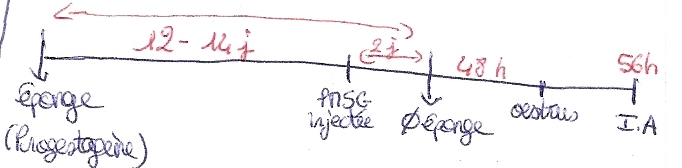 12 - 14 j
2 j
48 h
56h
Éponge
(Progestagène)
PMSG
injectée
Ø éponge
oestrus
I.A